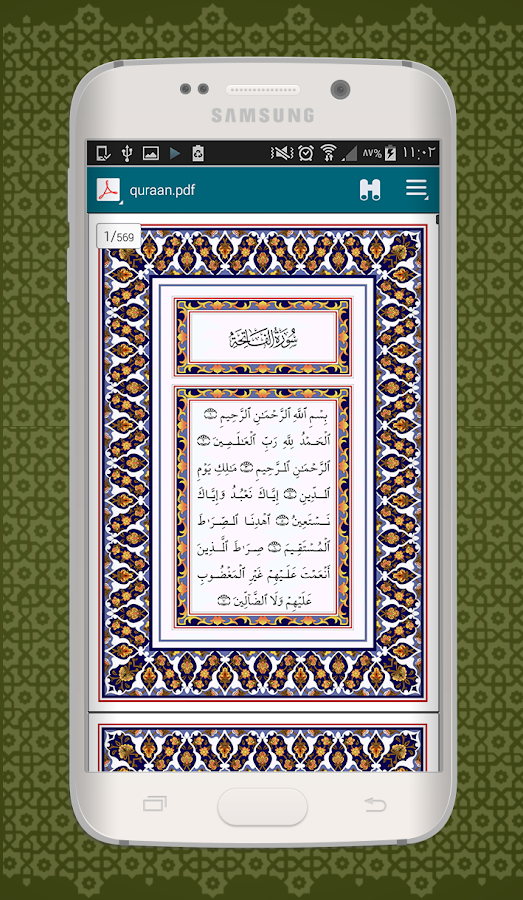 SAMSUNG
٨٧% ١١:٠٢
quraan.pdf
1/569
سُورَةُ الفَاتِحَةِ
بِسْمِ ٱللَّهِ ٱلرَّحْمَـٰنِ ٱلرَّحِيمِ ۝١
ٱلْحَمْدُ لِلَّهِ رَبِّ ٱلْعَـٰلَمِينَ ۝٢
ٱلرَّحْمَـٰنِ ٱلرَّحِيمِ ۝٣ مَـٰلِكِ يَوْمِ
ٱلدِّينِ ۝٤ إِيَّاكَ نَعْبُدُ وَإِيَّاكَ
نَسْتَعِينُ ۝٥ ٱهْدِنَا ٱلصِّرَٰطَ
ٱلْمُسْتَقِيمَ ۝٦ صِرَٰطَ ٱلَّذِينَ
أَنْعَمْتَ عَلَيْهِمْ غَيْرِ ٱلْمَغْضُوبِ
عَلَيْهِمْ وَلَا ٱلضَّآلِّينَ ۝٧